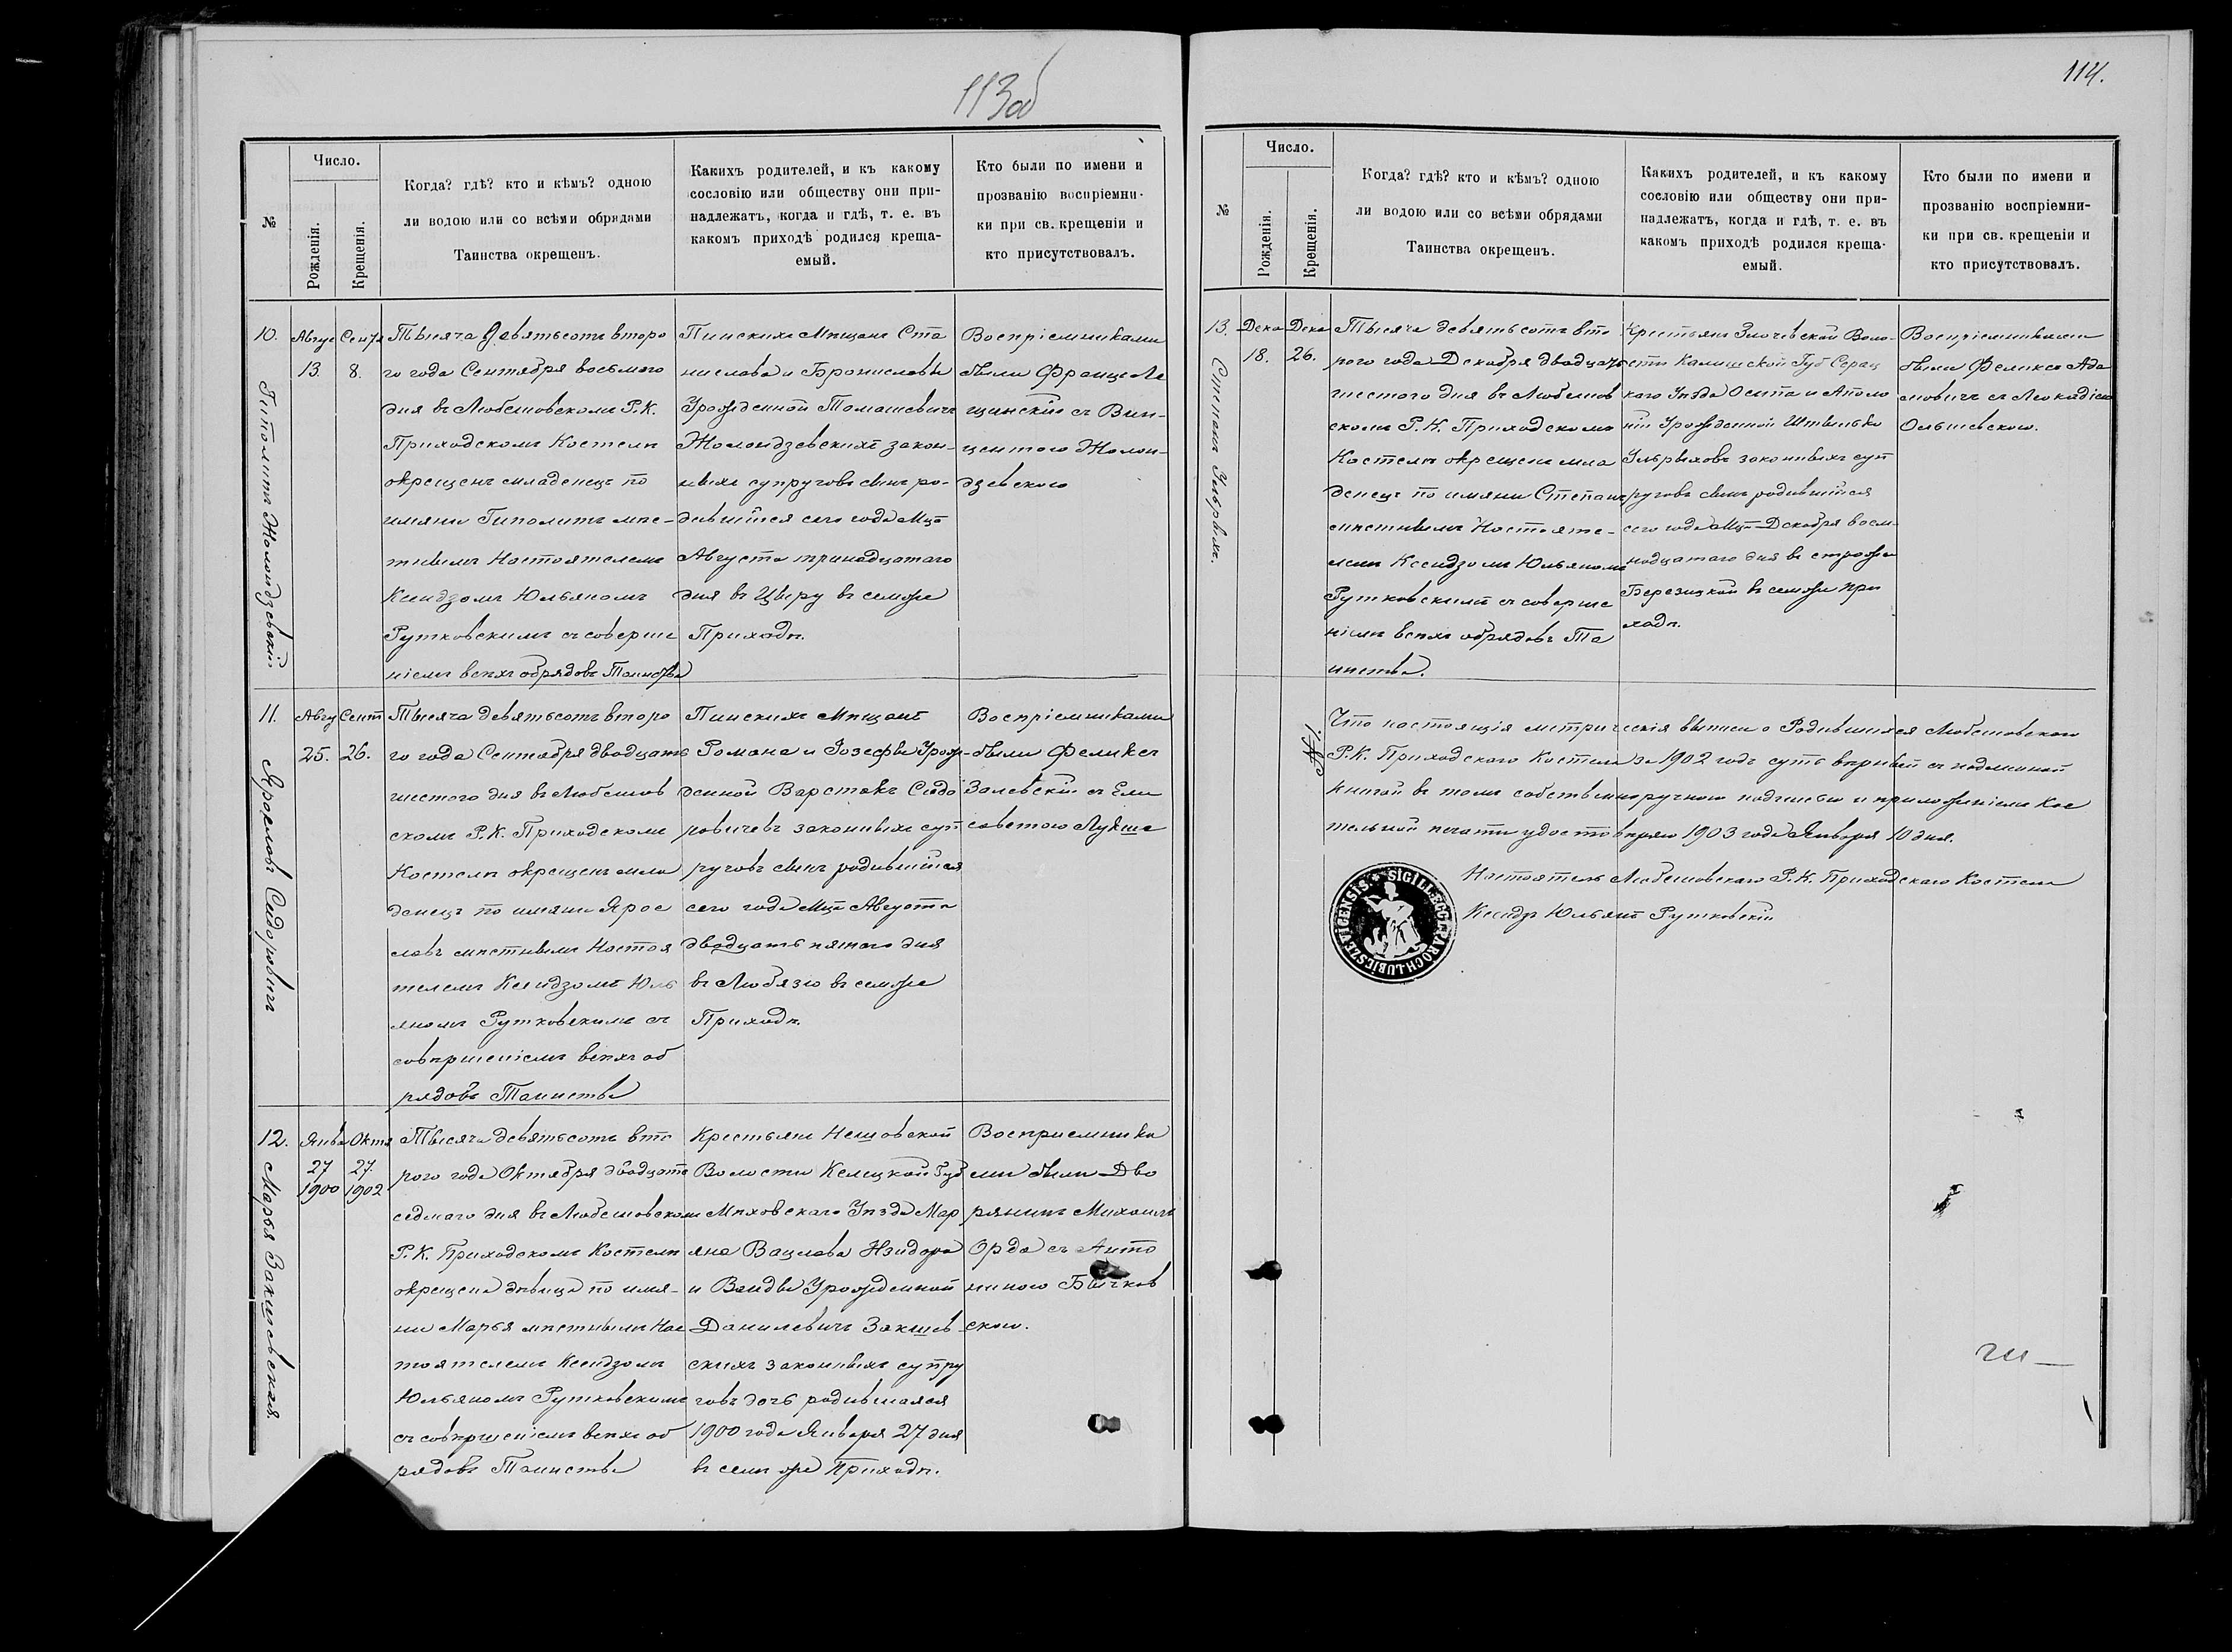 113об
№
Число.
Рожденія.
Крещенія.
Когда? гдѣ? кто и кѣмъ? одною
ли водою или со всѣми обрядами
Таинства окрещенъ.
Какихъ родителей, и къ какому
сословію или обществу они при-
надлежатъ, когда и гдѣ, т. е. въ
какомъ приходѣ родился креща-
емый.
Кто были по имени и
прозванію воспріемни-
ки при св. крещеніи и
кто присутствовалъ.
10.
Гиполитъ Жолондзевскій
Авгус
13.
Сентя
8.
Тысяча девятьсотъ второ
го года Сентября восьмого
дня въ Любешовскомъ Р. К.
Приходскомъ Костелѣ
окрещенъ младенецъ по
имяни Гиполитъ мѣс-
тнымъ Настоятелемъ
Ксендзомъ Юльяномъ
Рутковскимъ съ соверше
ніемъ всѣхъ обрядовъ Таинства
Пинскихъ Мѣщанъ Ста
нислава и Брониславы
Урожденной Томашевичъ
Жолондзевскихъ закон-
ныхъ супруговъ сынъ ро-
дившійся сего года Мца
Августа тринадцатаго
дня въ Цверу въ семъ же
Приходѣ.
Воспріемниками
были Францъ Ле
щинскій съ Вин-
центою Жолон-
дзевскою
11.
Ярославъ Сидоровичъ
Авгу
25.
Сент
26.
Тысяча девятьсотъ второ
го года Сентября двадцать
шестого дня въ Любешов
скомъ Р. К. Приходскомъ
Костелѣ окрещенъ мла
денецъ по имяни Ярос
лавъ мѣстнымъ Настоя
телемъ Ксендзомъ Юль
яномъ Рутковскимъ съ
совершеніемъ всѣхъ об
рядовъ Таинства
Пинскихъ Мѣщанъ
Романа и Іозефы Урож-
денной Варстакъ Сидо
ровичевъ законныхъ суп
руговъ сынъ родившійся
сего года Мца Августа
двадцать пятого дня
въ Любязю въ семъ же
Приходѣ.
Воспріемниками
были Феликсъ
Залевскій съ Ели
саветою Лукша
12.
Марья Закшевская.
Янва
27
1900
Октя
27.
1902
Тысяча девятьсотъ вто
рого года Октября двадцать
седмаго дня въ Любешовскомъ
Р. К. Приходскомъ Костелѣ
окрещена дѣвица по имя-
ни Марья мѣстнымъ Нас
тоятелемъ Ксендзомъ
Юльяномъ Рутковскимъ
съ совершеніемъ всѣхъ об
рядовъ Таинства
Крестьянъ Нешовской
Волости Келецкой Губ
Мѣховскаго Уѣзда Мар
яна Вацлава Изидора
и Ванды Урожденной
Данилевичъ Закшев
скихъ законныхъ супру
говъ дочь родившаяся
1900 года Января 27 дня
въ семъ же Приходѣ.
Восприемника
ми были Дво
рянинъ Михаилъ
Орда съ Анто
ниною Бычков
скою.
114.
№
Число.
Рожденія.
Крещенія.
Когда? гдѣ? кто и кѣмъ? одною
ли водою или со всѣми обрядами
Таинства окрещенъ.
Какихъ родителей, и къ какому
сословію или обществу они при-
надлежатъ, когда и гдѣ, т. е. въ
какомъ приходѣ родился креща-
емый.
Кто были по имени и
прозванію воспріемни-
ки при св. крещеніи и
кто присутствовалъ.
13.
Степанъ Ульрыхъ.
Дека
18.
Дека
26.
Тысяча девятьсотъ вто
рого года Декабря двадцать
шестого дня въ Любешов
скомъ Р. К. Приходскомъ
Костелѣ окрещенъ мла
денецъ по имяни Степанъ
мѣстнымъ Настояте-
лемъ Ксендзомъ Юльяномъ
Рутковскимъ съ соверше
ніемъ всѣхъ обрядовъ Та
инства.
Крестьянъ Злочевской Воло-
сти Калишской Губ Серад
каго Уѣзда Осипа и Аполо
ніи Урожденной Штылько
Ульрыховъ законныхъ суп
руговъ сынъ родившійся
сего года Мца Декабря восем-
надцатаго дня въ стражѣ
Березицкой въ семъ же При
ходѣ.
Воспріемниками
были Феликсъ Ада
мовичъ съ Леокадіею
Ольшевскою.
Что настоящія метрическія выписи о Родившихся Любешовскаго
Р. К. Приходскаго Костела за 1902 годъ суть вѣрны съ подлинной
книгой въ томъ собственноручною подписью и приложеніемъ Кос
тельной печати удостовѣряю 1903 года Января 10 дня.
Настоятель Любешовскаго Р. К. Приходскаго Костела
Ксендзъ Юльянъ Рутковскій
SIGILL. ECCL. PAROCH. LUBIESZEVICENSIS